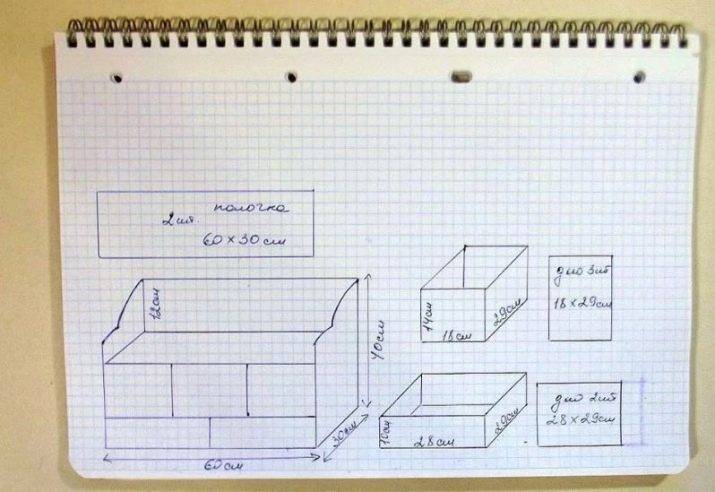 полочка
2 шт.
60×30 см
12см
40см
30см
60см
14см
18см
29см
дно 3шт
18×29см
10см
28см
29см
дно 2шт
28×29см